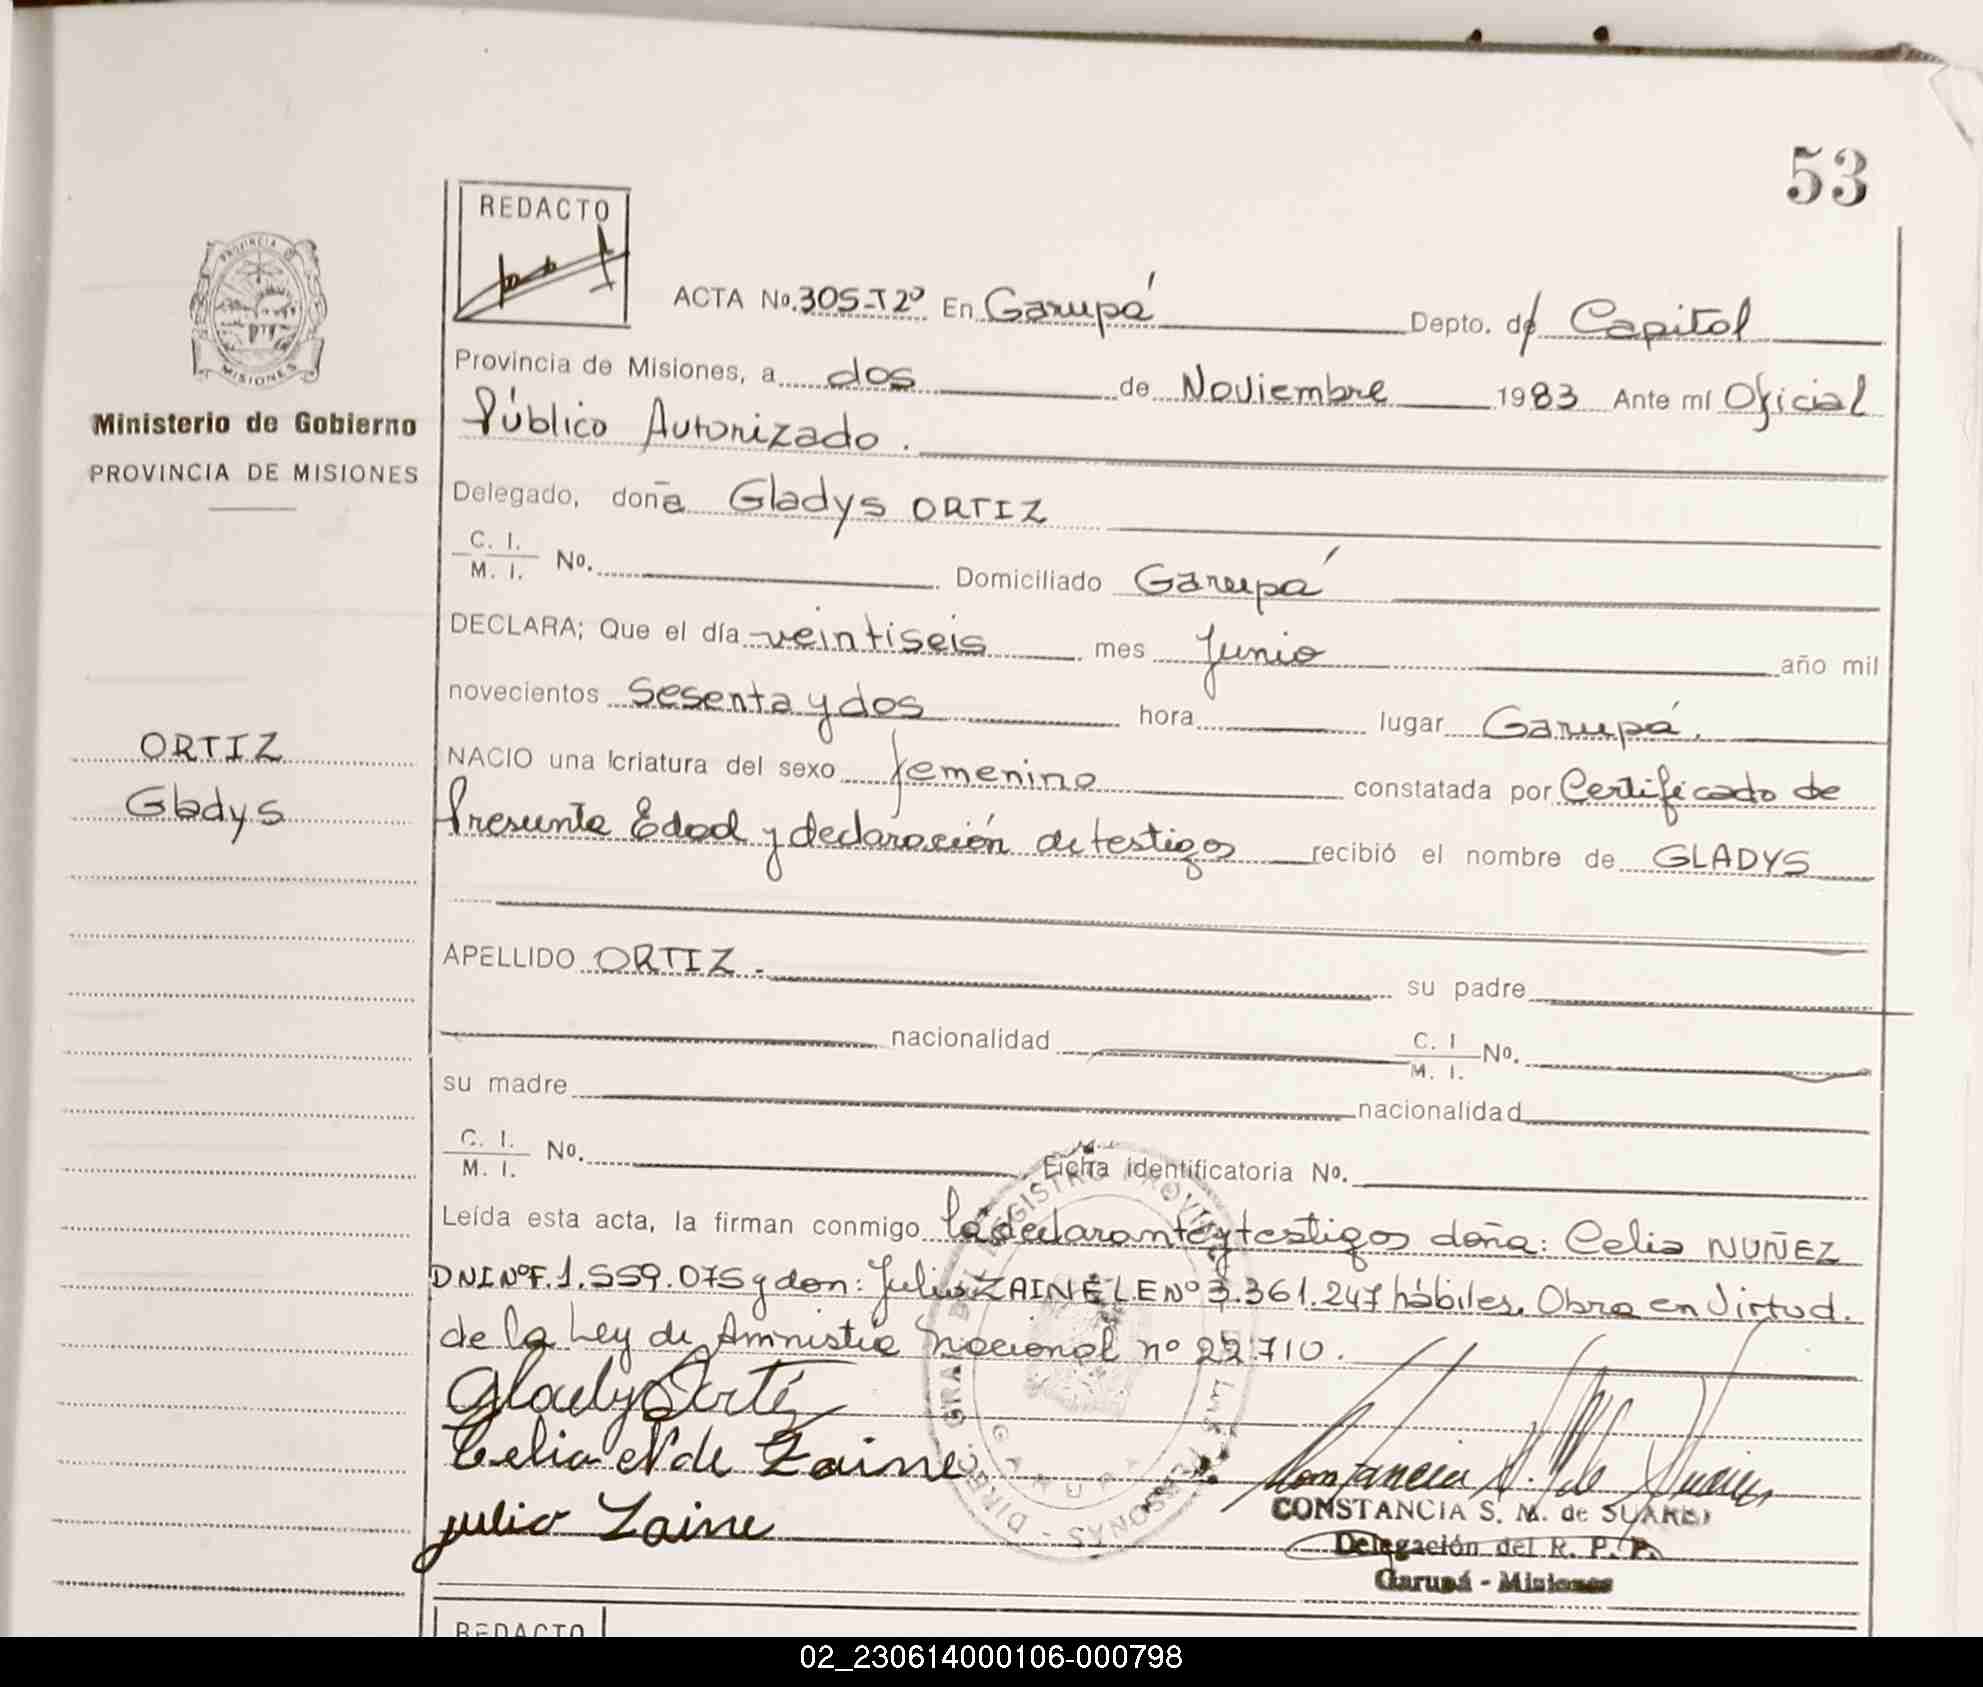 53
REDACTO
PROVINCIA DE
MISIONES
Ministerio de Gobierno
PROVINCIA DE MISIONES
ORTIZ
Gladys
ACTA No. 305-T2º En Garupá Depto. de Capital
Provincia de Misiones, a dos de Noviembre 1983 Ante mí Oficial
Público Autorizado.
Delegado, doña Gladys ORTIZ
C. I. / M. I. No. Domiciliado Garupá
DECLARA; Que el día veintiseis mes Junio año mil
novecientos sesenta y dos hora lugar Garupá.
NACIO una criatura del sexo femenino constatada por Certificado de
Presunta Edad y declaración de testigos recibió el nombre de GLADYS
APELLIDO ORTIZ.- su padre
nacionalidad C. I / M. I. No.
su madre nacionalidad
C. I. / M. I. No. Ficha identificatoria No.
Leída esta acta, la firman conmigo la declarante y testigos doña: Celia NUÑEZ
DNI Nº F. 1.559.075 y don: Julio ZAINE L.E Nº 3.361.247 hábiles. Obra en Virtud.
de la Ley de Amnistia Nacional nº 22.710.
Gladys Ortiz
Celia N de Zaine
julio Zaine
CONSTANCIA S. M. de SUAREZ
Delegación del R. P. P.
Garupá - Misiones
REDACTO
02_230614000106-000798